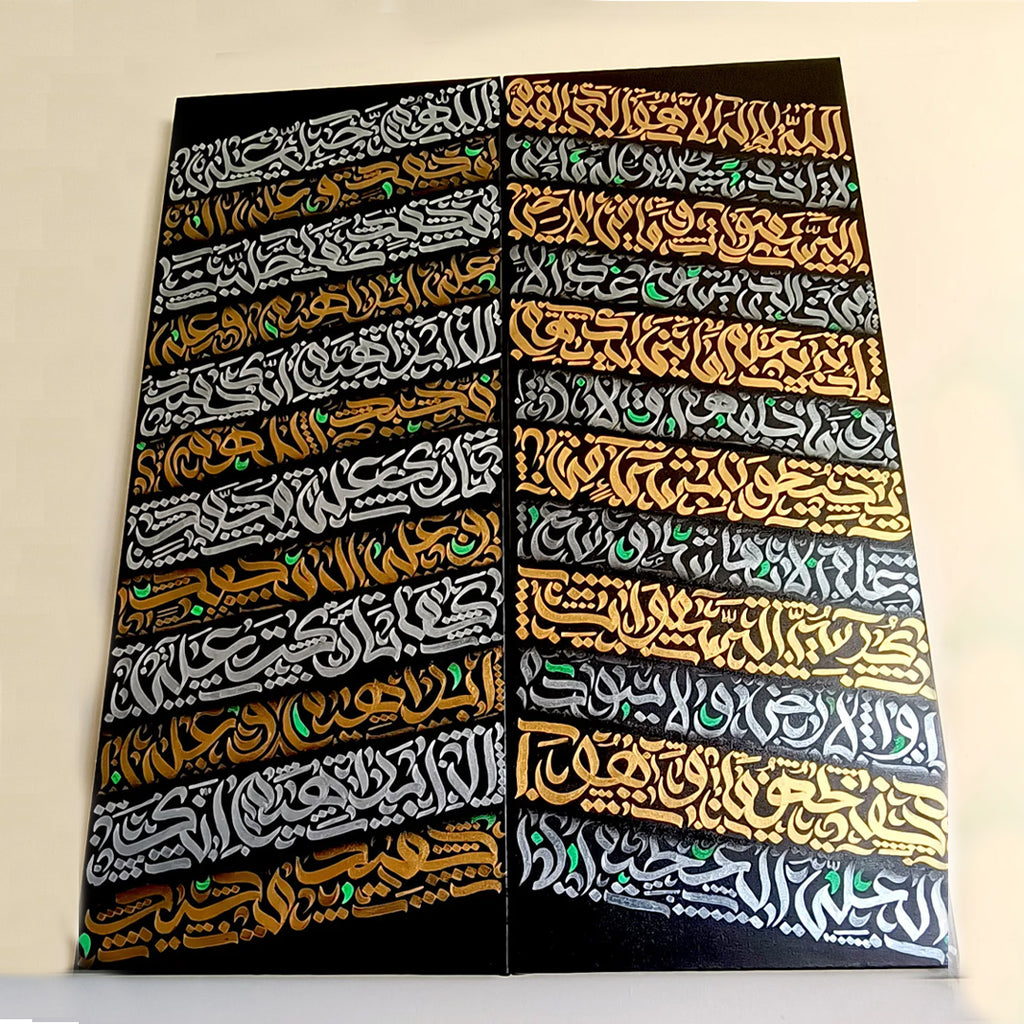 الله لا اله الا هو الحي القيوم
لا تاخذه سنة ولا نوم له ما في
السموات وما في الارض
من ذا الذي يشفع عنده الا
باذنه يعلم ما بين ايديهم
وما خلفهم ولا
يحيطون بشيء من
علمه الا بما شاء وسع
كرسيه السموات
والارض ولا يئوده
حفظهما وهو
العلي العظيم
اللهم صل على
محمد وعلى ال
محمد كما صليت
على ابراهيم وعلى
ال ابراهيم انك حميد
مجيد اللهم
بارك على محمد
وعلى ال محمد
كما باركت على
ابراهيم وعلى
ال ابراهيم انك
حميد مجيد